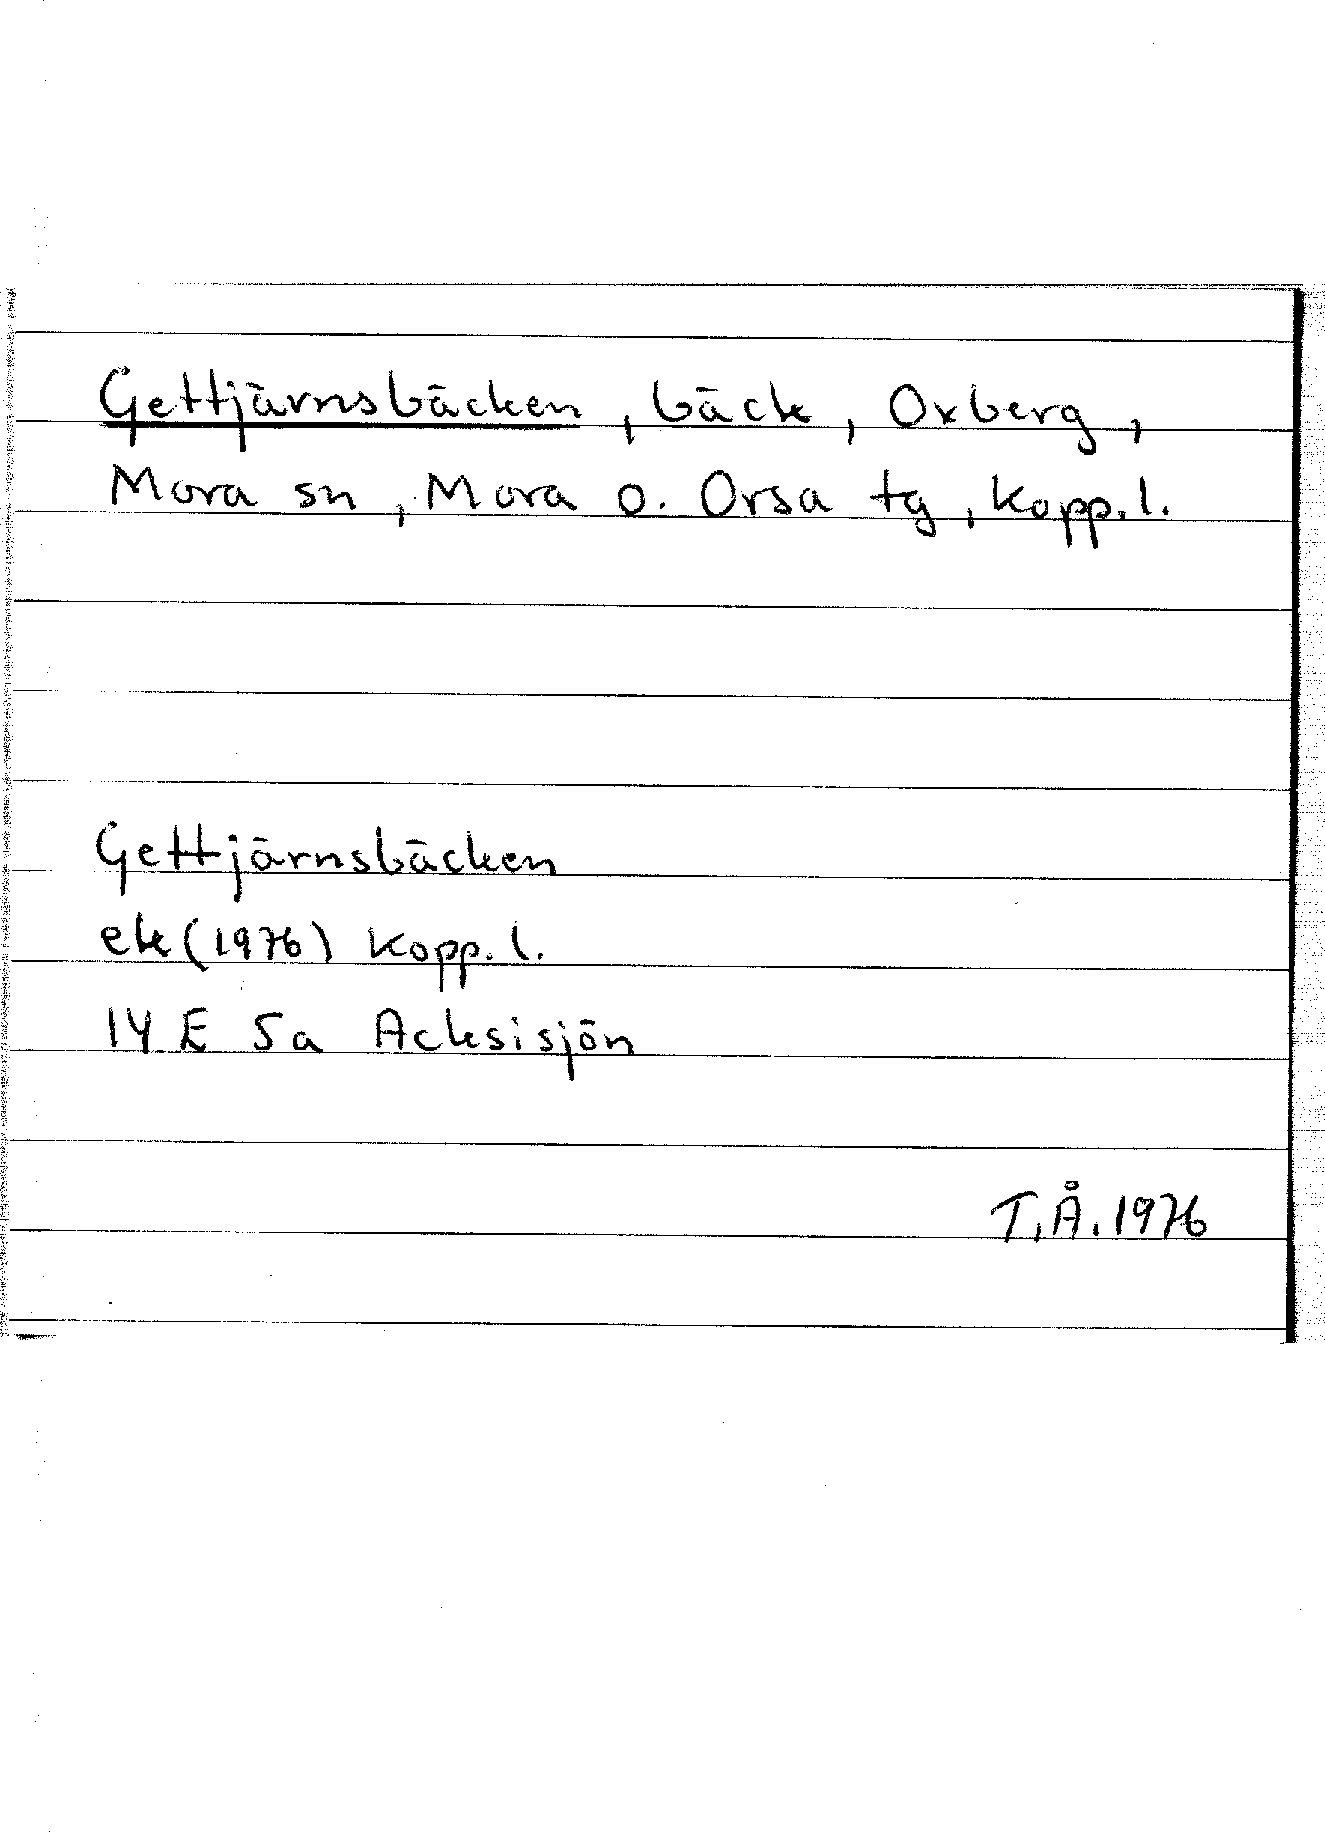 Gettjärnsbäcken, bäck, Oxberg,
Mora sn, Mora o. Orsa tg, Kopp.l.
Gettjärnsbäcken
ek (1976) Kopp.l.
14 E 5a Acksisjön
T.Å. 1976